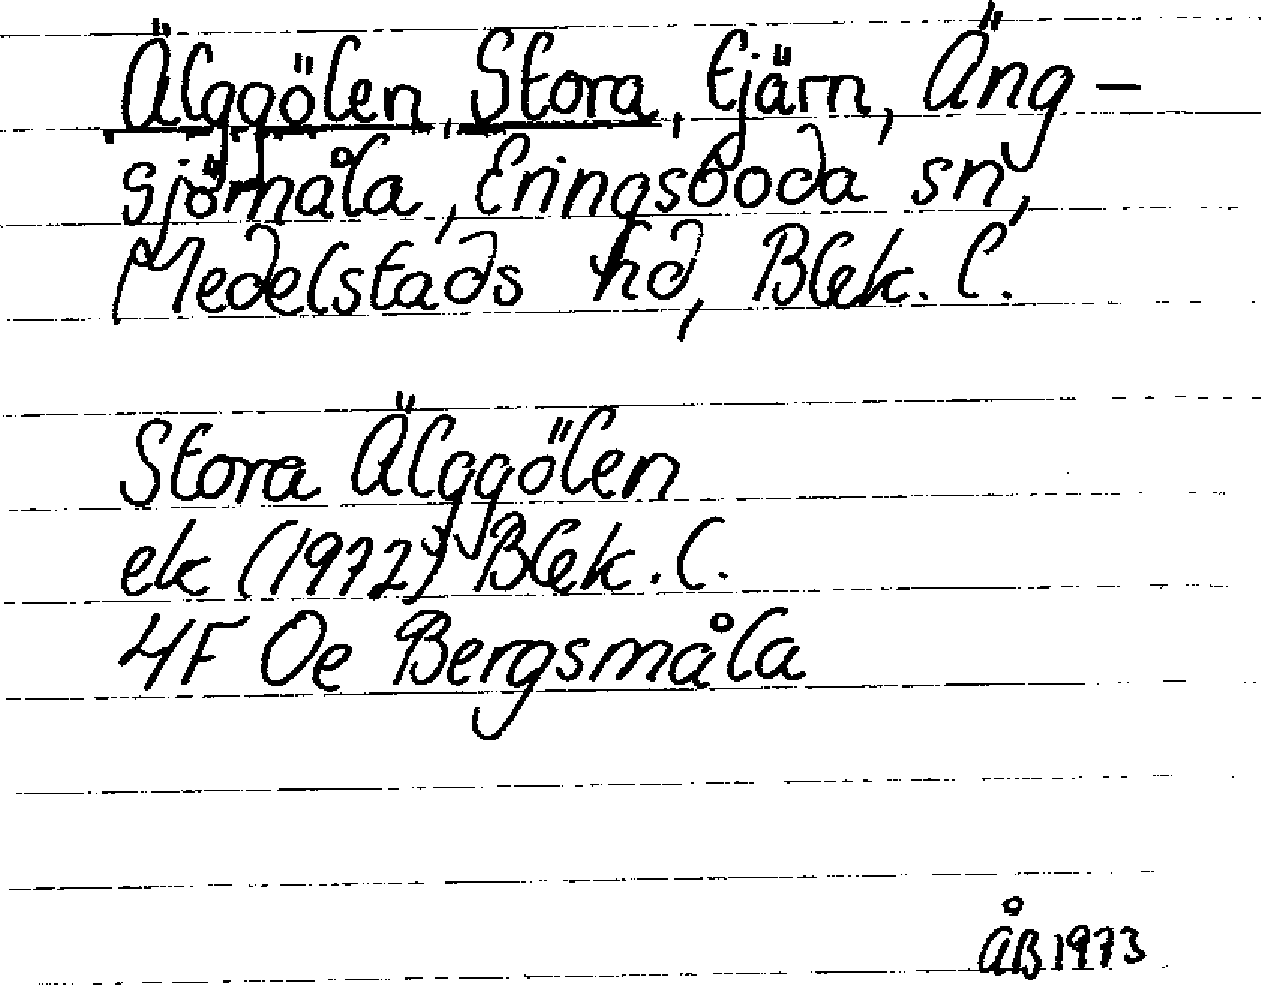 Älggölen, Stora, tjärn, Äng-
sjömåla, Eringsboda sn,
Medelstads hd, Blek. l.
Stora Älggölen
ek (1972) Blek. l.
4F Oe Bergsmåla
ÅB 1973